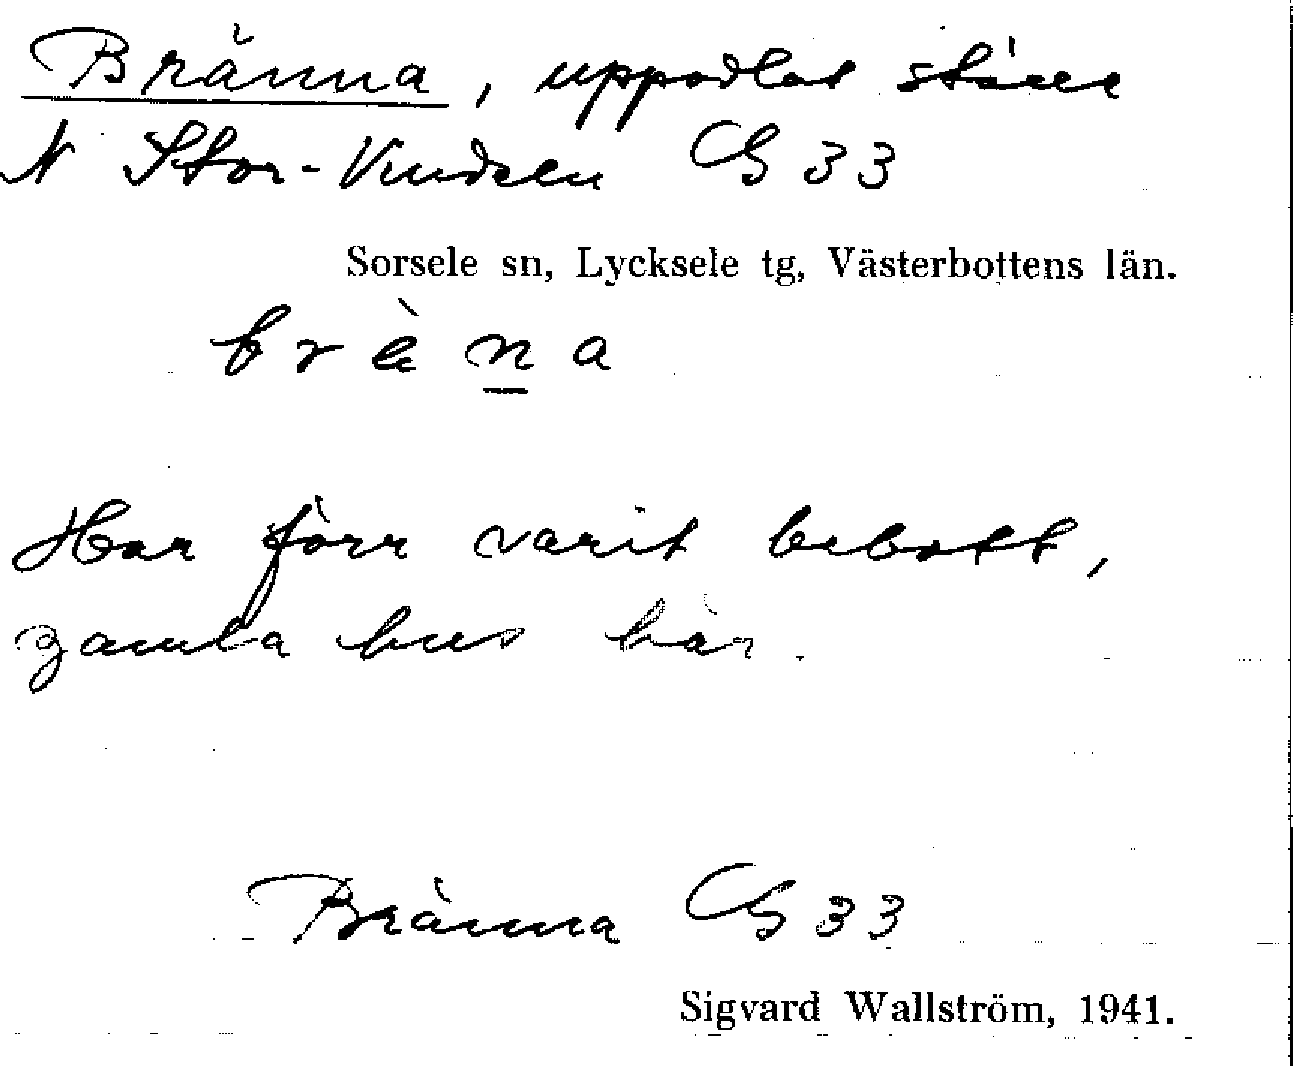 Bränna, uppodlat ställe
N Stor-Vindeln G 33
Sorsele sn, Lycksele tg, Västerbottens län.
brὲna
Har förr varit bebott,
gamla hus här.
Bränna G 33
Sigvard Wallström, 1941.